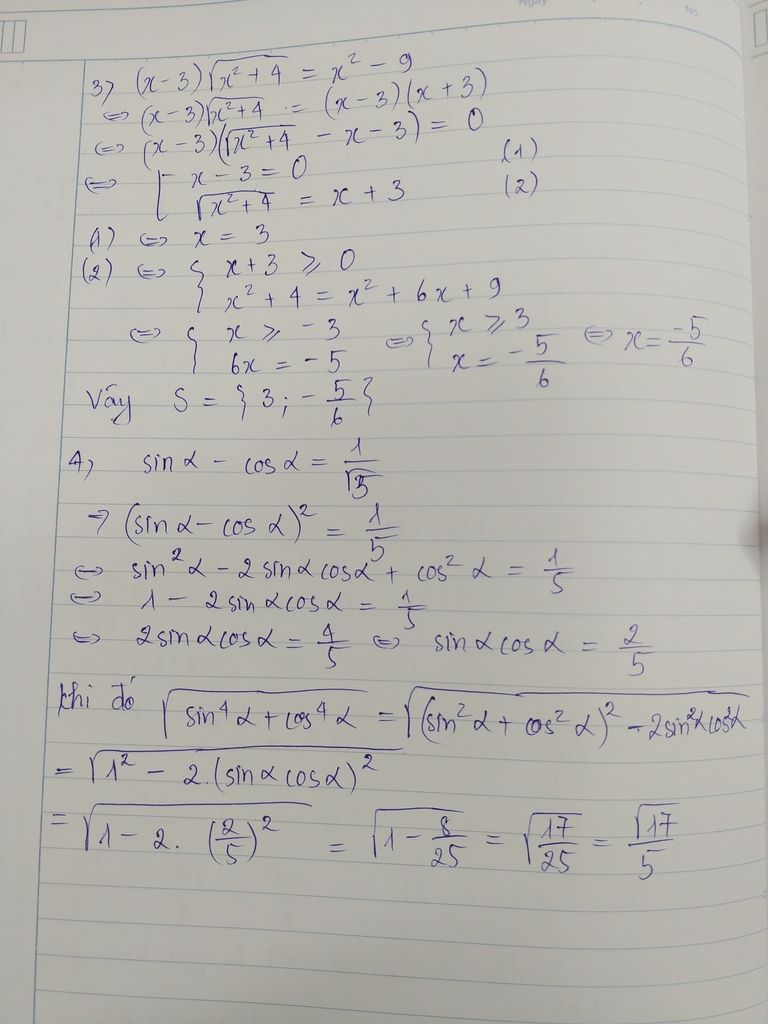 Ngày
No.
3) (x-3)√(x²+4) = x² - 9
⇔ (x-3)√(x²+4) = (x-3)(x+3)
⇔ (x-3)(√(x²+4) - x - 3) = 0
⇔ [ x - 3 = 0 (1)
√(x²+4) = x + 3 (2)
(1) ⇔ x = 3
(2) ⇔ { x+3 ⩾ 0
x² + 4 = x² + 6x + 9
⇔ { x ⩾ -3 ⇔ { x ⩾ 3 ⇔ x = -5/6
6x = -5 x = -5/6
Vậy S = {3; -5/6}
4) sin α - cos α = 1/√5
→ (sin α - cos α)² = 1/5
⇔ sin² α - 2 sin α cos α + cos² α = 1/5
⇔ 1 - 2 sin α cos α = 1/5
⇔ 2 sin α cos α = 4/5 ⇔ sin α cos α = 2/5
khi đó √(sin⁴ α + cos⁴ α) = √((sin² α + cos² α)² - 2 sin² α cos² α)
= √(1² - 2.(sin α cos α)²)
= √(1 - 2. (2/5)²) = √(1 - 8/25) = √(17/25) = √17/5